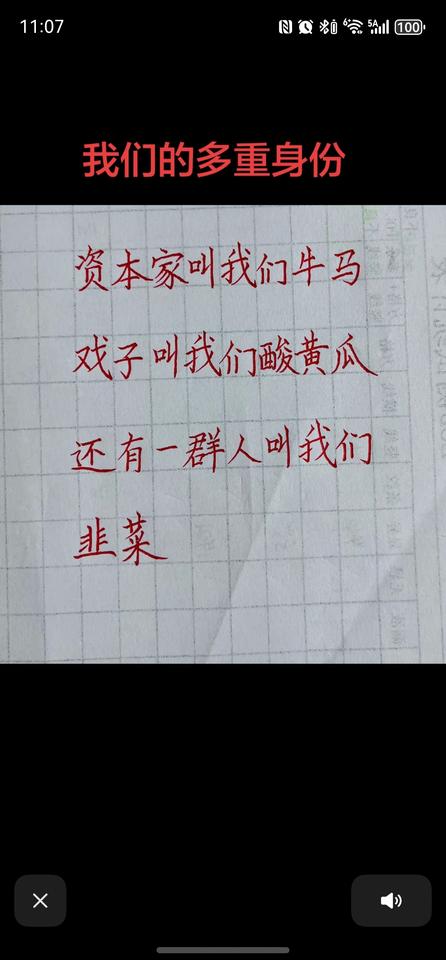 11:07
100
我们的多重身份
资本家叫我们牛马
戏子叫我们酸黄瓜
还有一群人叫我们
韭菜